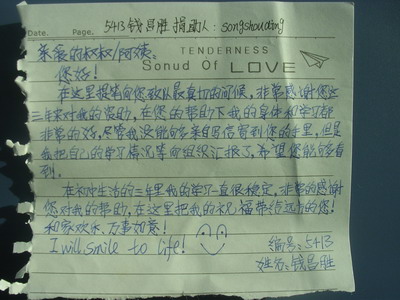 5413 钱昌胜 捐助人：songshouding
Date. Page.
TENDERNESS
Sonud Of LOVE
亲爱的叔叔/阿姨：
您好！
在这里提笔向您致以最真切的问候，非常感谢您这
三年来对我的资助，在您的帮助下我的身体和学习都
非常的好，尽管我没能够亲自写信寄到您的手里，但是
我把自己的学习情况等向组织汇报了，希望您能够看
到。
在初中生活的三年里我的学习一直很稳定，非常的感谢
您对我的帮助，在这里把我的祝福带给远方的您！
和家欢乐，万事如意！
I will smile to life!
编号：5413
姓名：钱昌胜